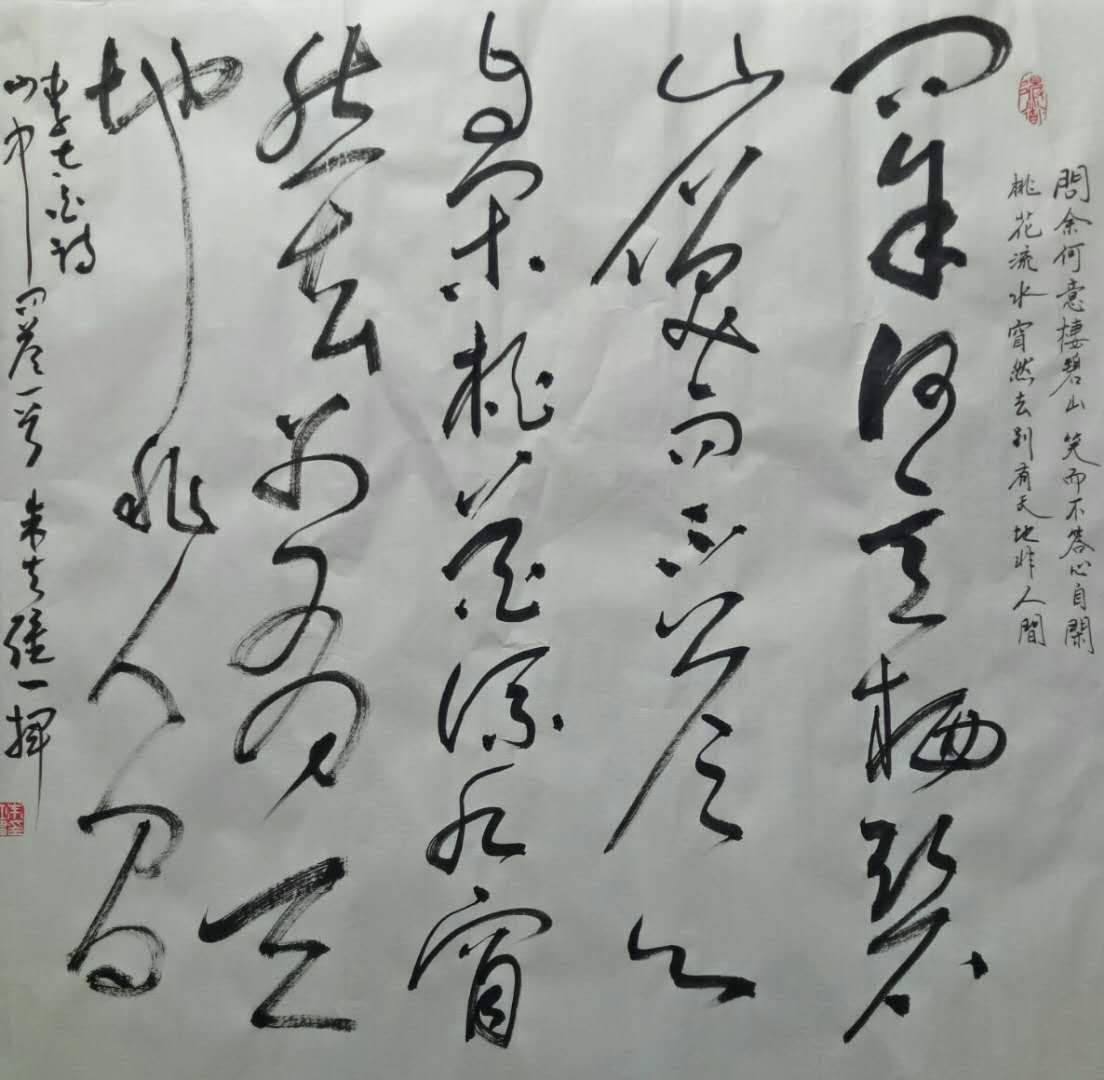 問余何意棲碧山 笑而不答心自閑
桃花流水窅然去别有天地非人間
问余何意栖碧
山笑而不答心
自闲桃花流水窅
然去别有天
地非人间
李太白诗
山中问答一首 朱强一挥